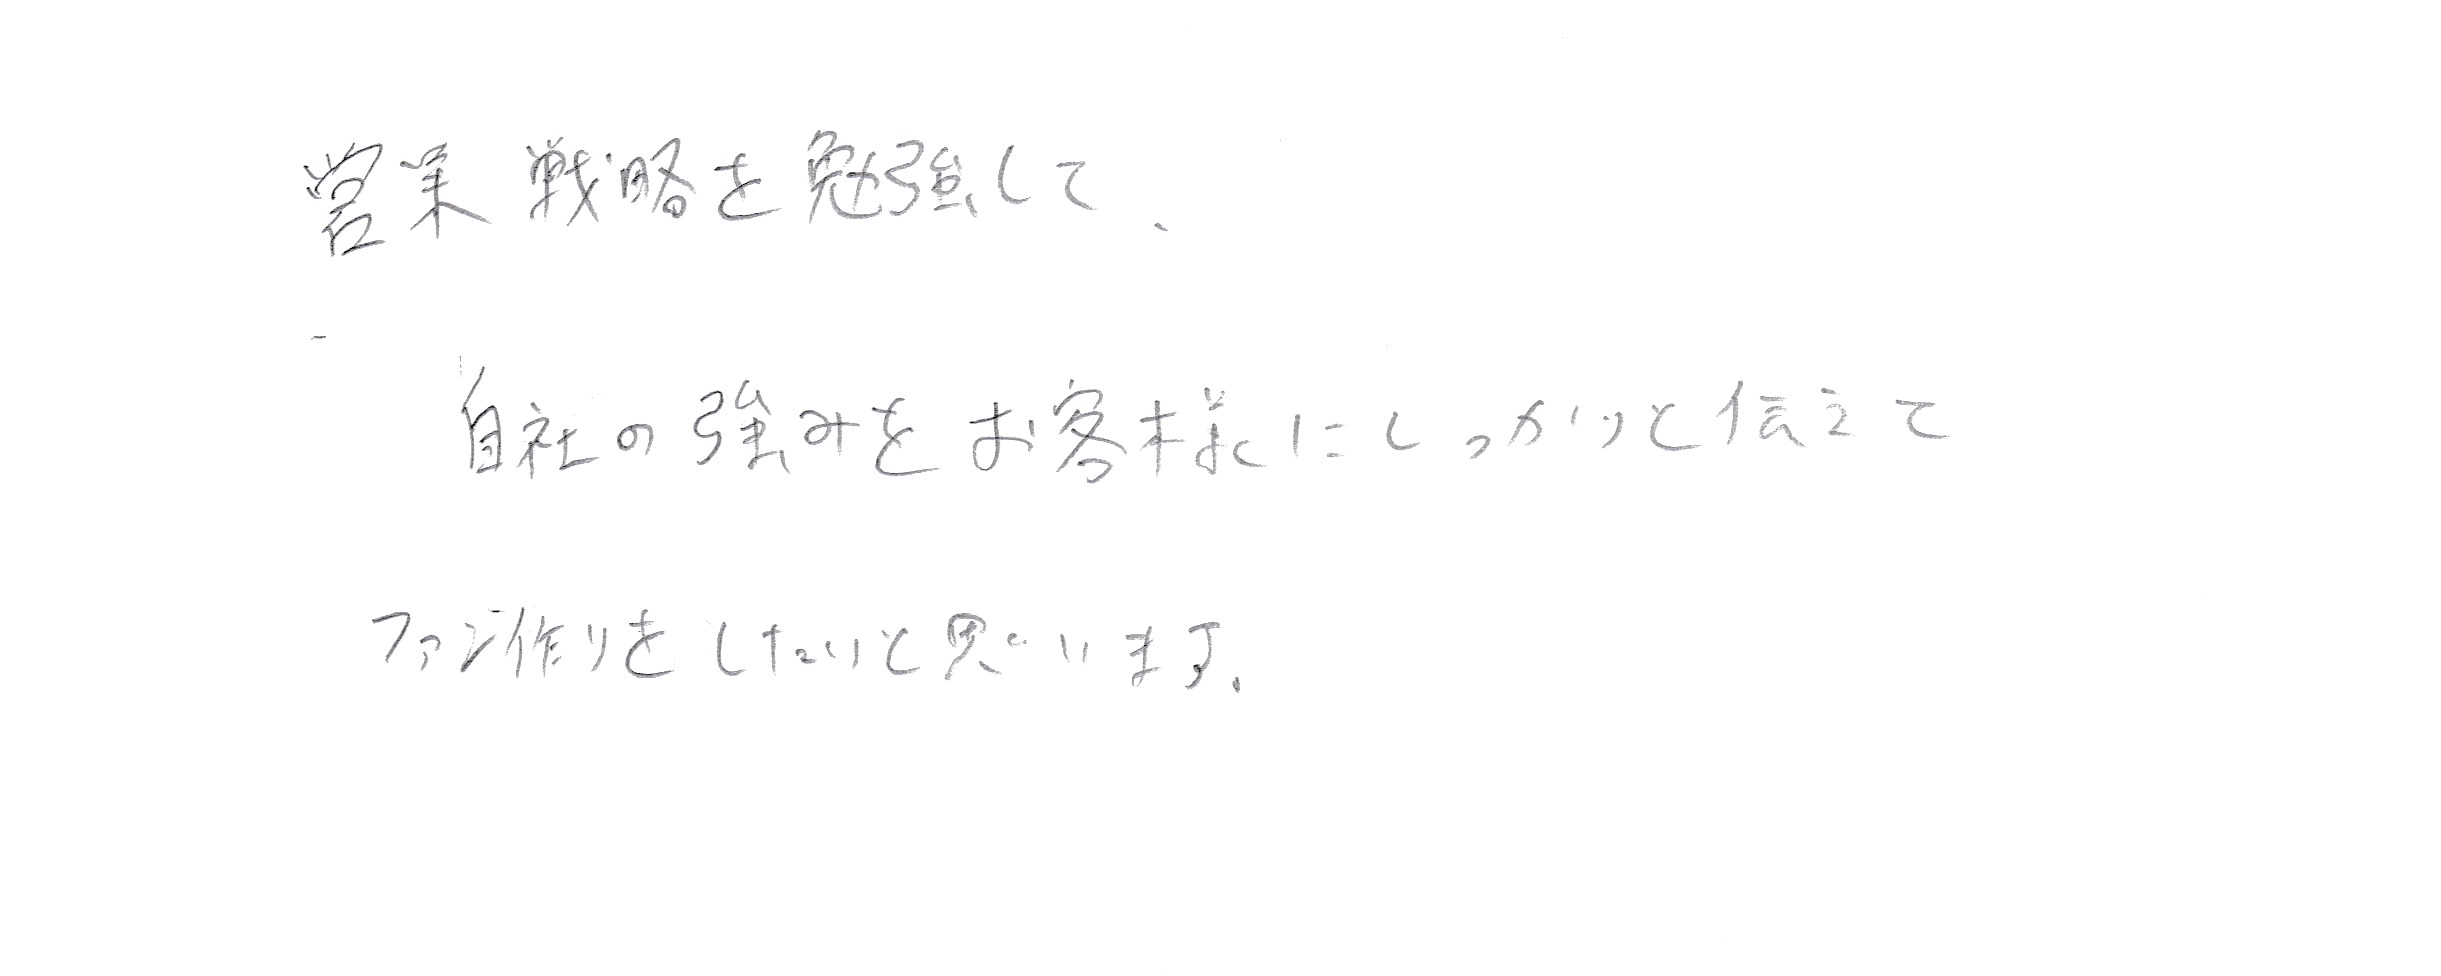 営業戦略を勉強して、
自社の強みをお客様にしっかりと伝えて
ファン作りをしたいと思います。